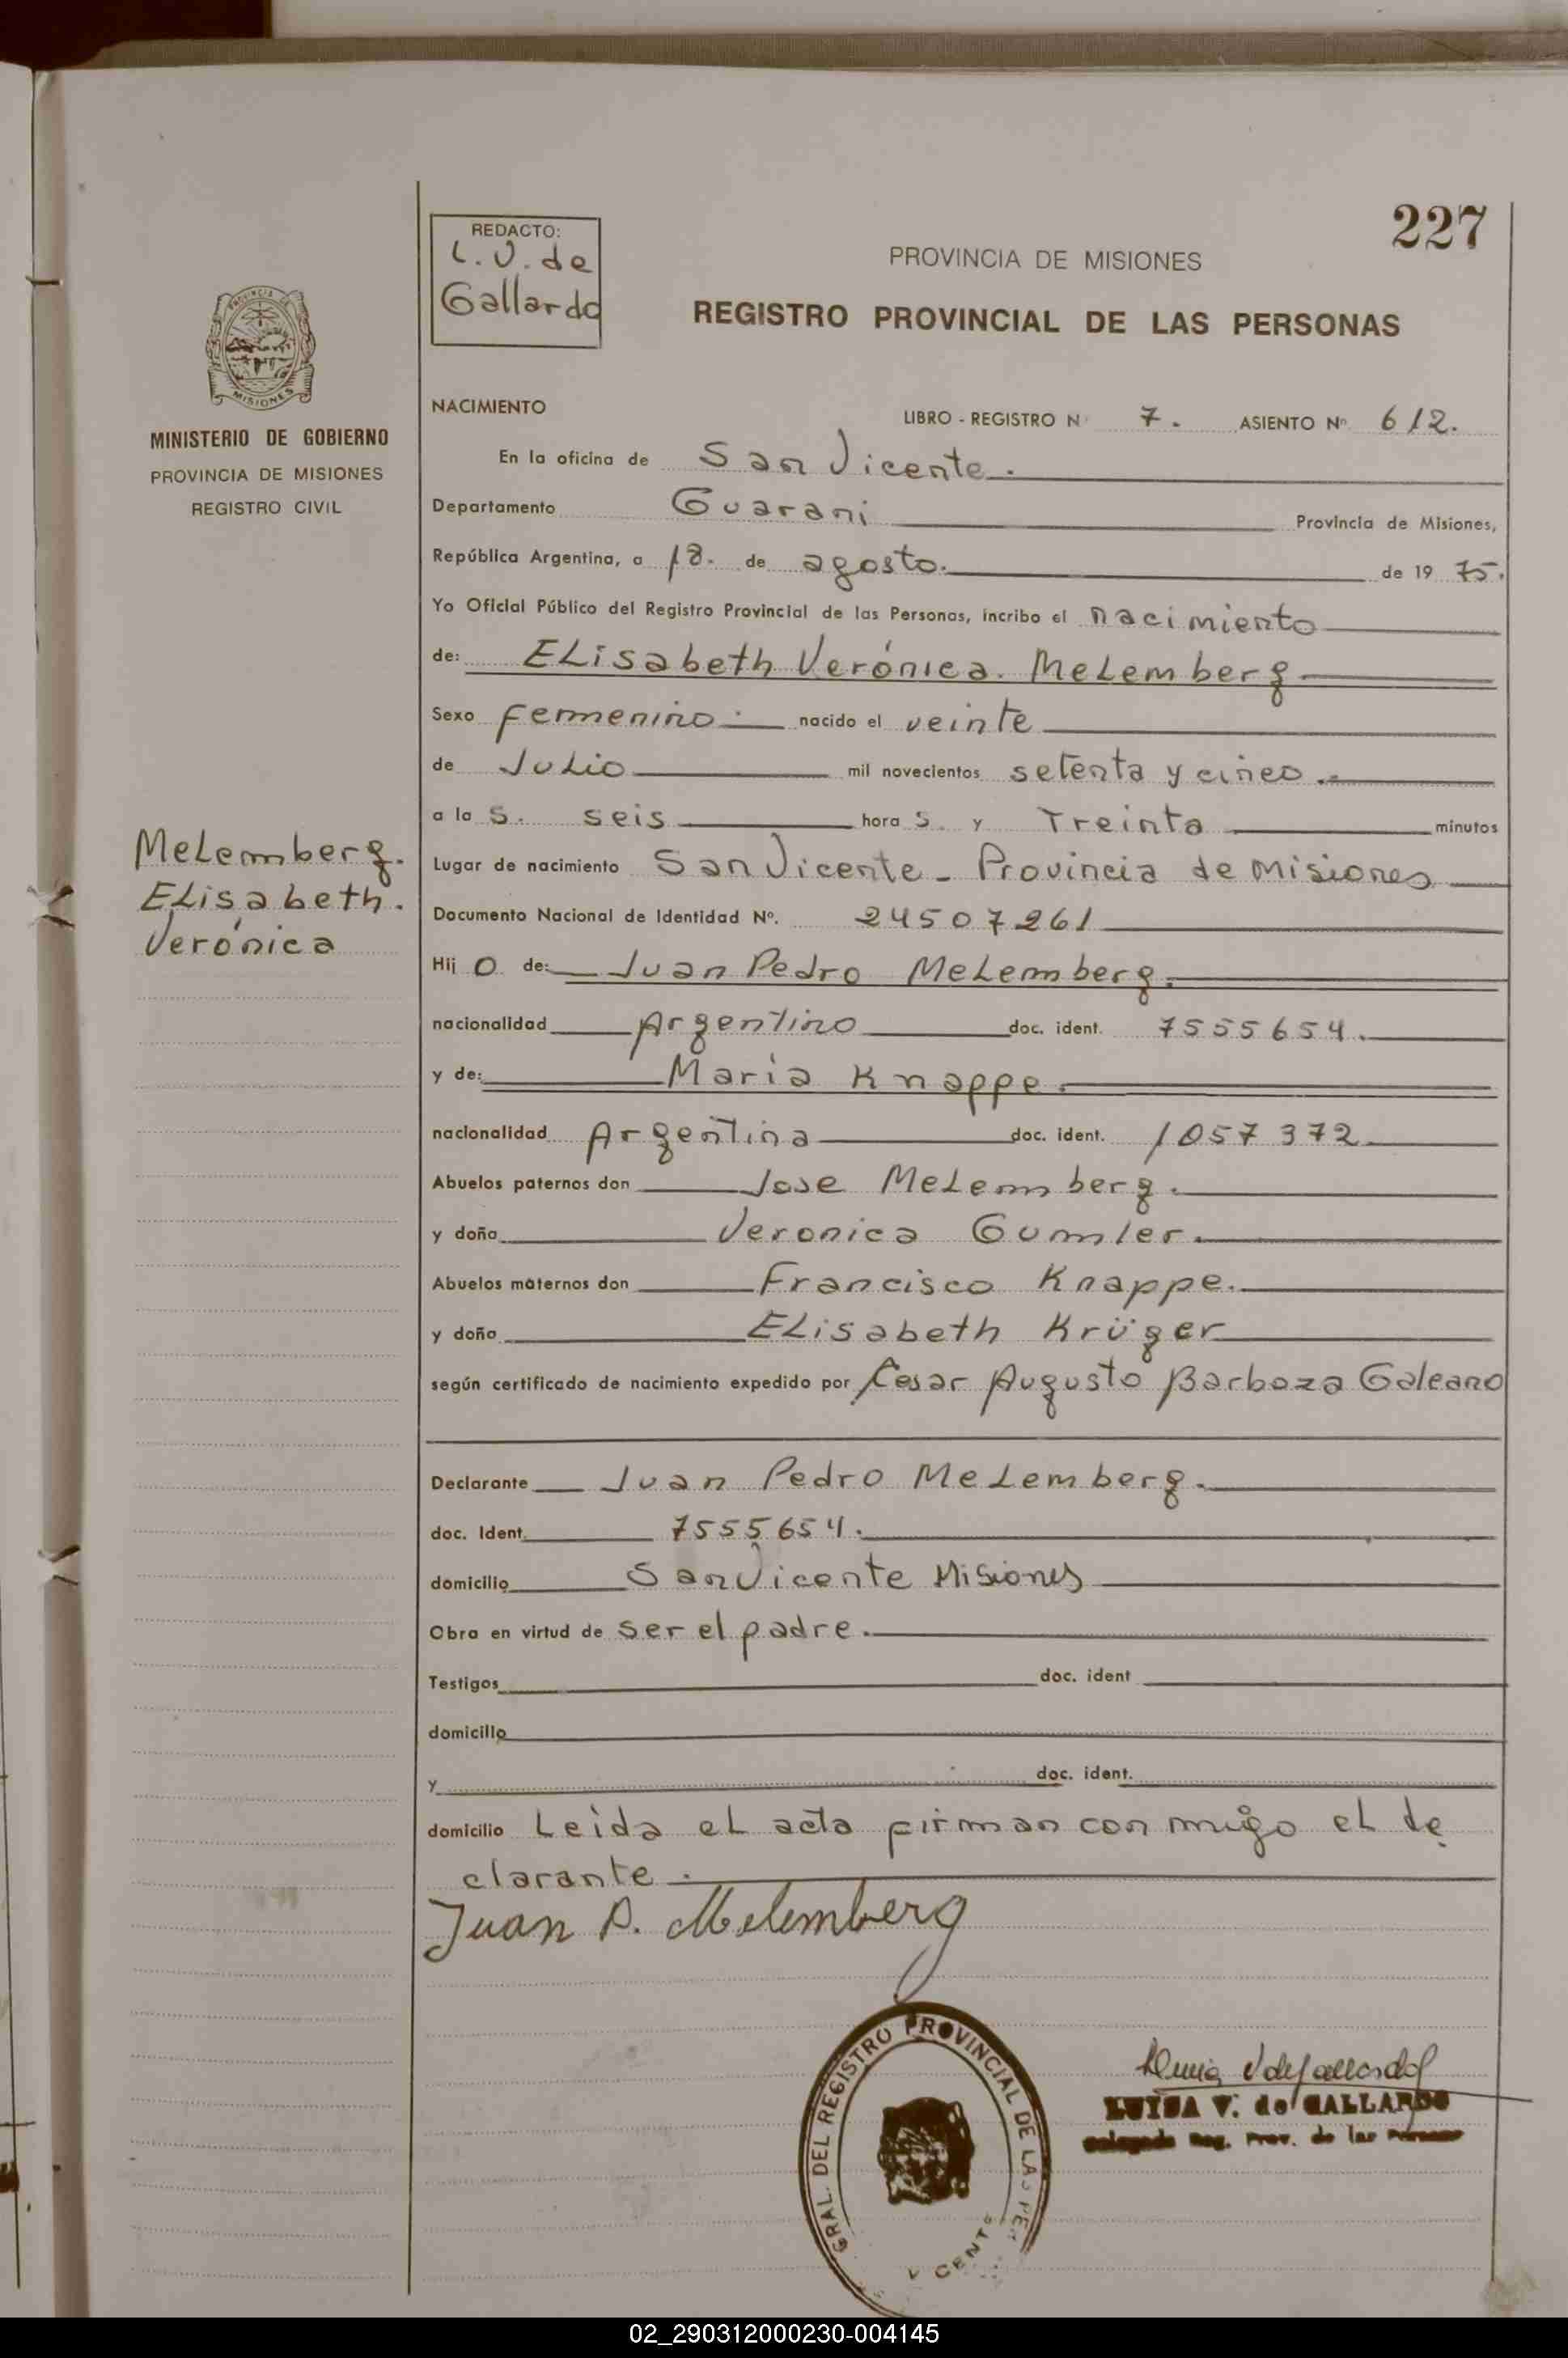 227
REDACTO:
L.V. de
Gallardo
PROVINCIA DE MISIONES
REGISTRO PROVINCIAL DE LAS PERSONAS
PROVINCIA DE
MISIONES
MINISTERIO DE GOBIERNO
PROVINCIA DE MISIONES
REGISTRO CIVIL
Melemberg.
Elisabeth.
Verónica
NACIMIENTO LIBRO - REGISTRO N 7. ASIENTO Nº 612.
En la oficina de San Vicente.
Departamento Guarani Provincia de Misiones,
República Argentina, a 18. de agosto. de 19 75.
Yo Oficial Público del Registro Provincial de las Personas, incribo el nacimiento
de: Elisabeth Verónica. Melemberg.
Sexo femenino. nacido el veinte
de Julio mil novecientos setenta y cinco.
a la s. seis hora s. y Treinta minutos
Lugar de nacimiento San Vicente - Provincia de Misiones
Documento Nacional de Identidad Nº. 24507261
Hij o de: Juan Pedro Melemberg.
nacionalidad Argentino doc. ident. 7555654.
y de: Maria Knappe.
nacionalidad Argentina doc. ident. 1057372
Abuelos paternos don Jose Melemberg.
y doña Veronica Gumler.
Abuelos maternos don Francisco Knappe.
y doña Elisabeth Krüger
según certificado de nacimiento expedido por Cesar Augusto Barboza Galeano
Declarante Juan Pedro Melemberg.
doc. Ident. 7555654.
domicilio San Vicente Misiones
Obra en virtud de ser el padre.
Testigos doc. ident
domicilio
y doc. ident.
domicilio Leida el acta firman conmigo el de
clarante.
Juan P. Melemberg
GRAL. DEL REGISTRO PROVINCIAL DE LAS PER
VICENTE
LUISA V. de GALLARDO
Delegada Reg. Prov. de las Personas
02_290312000230-004145